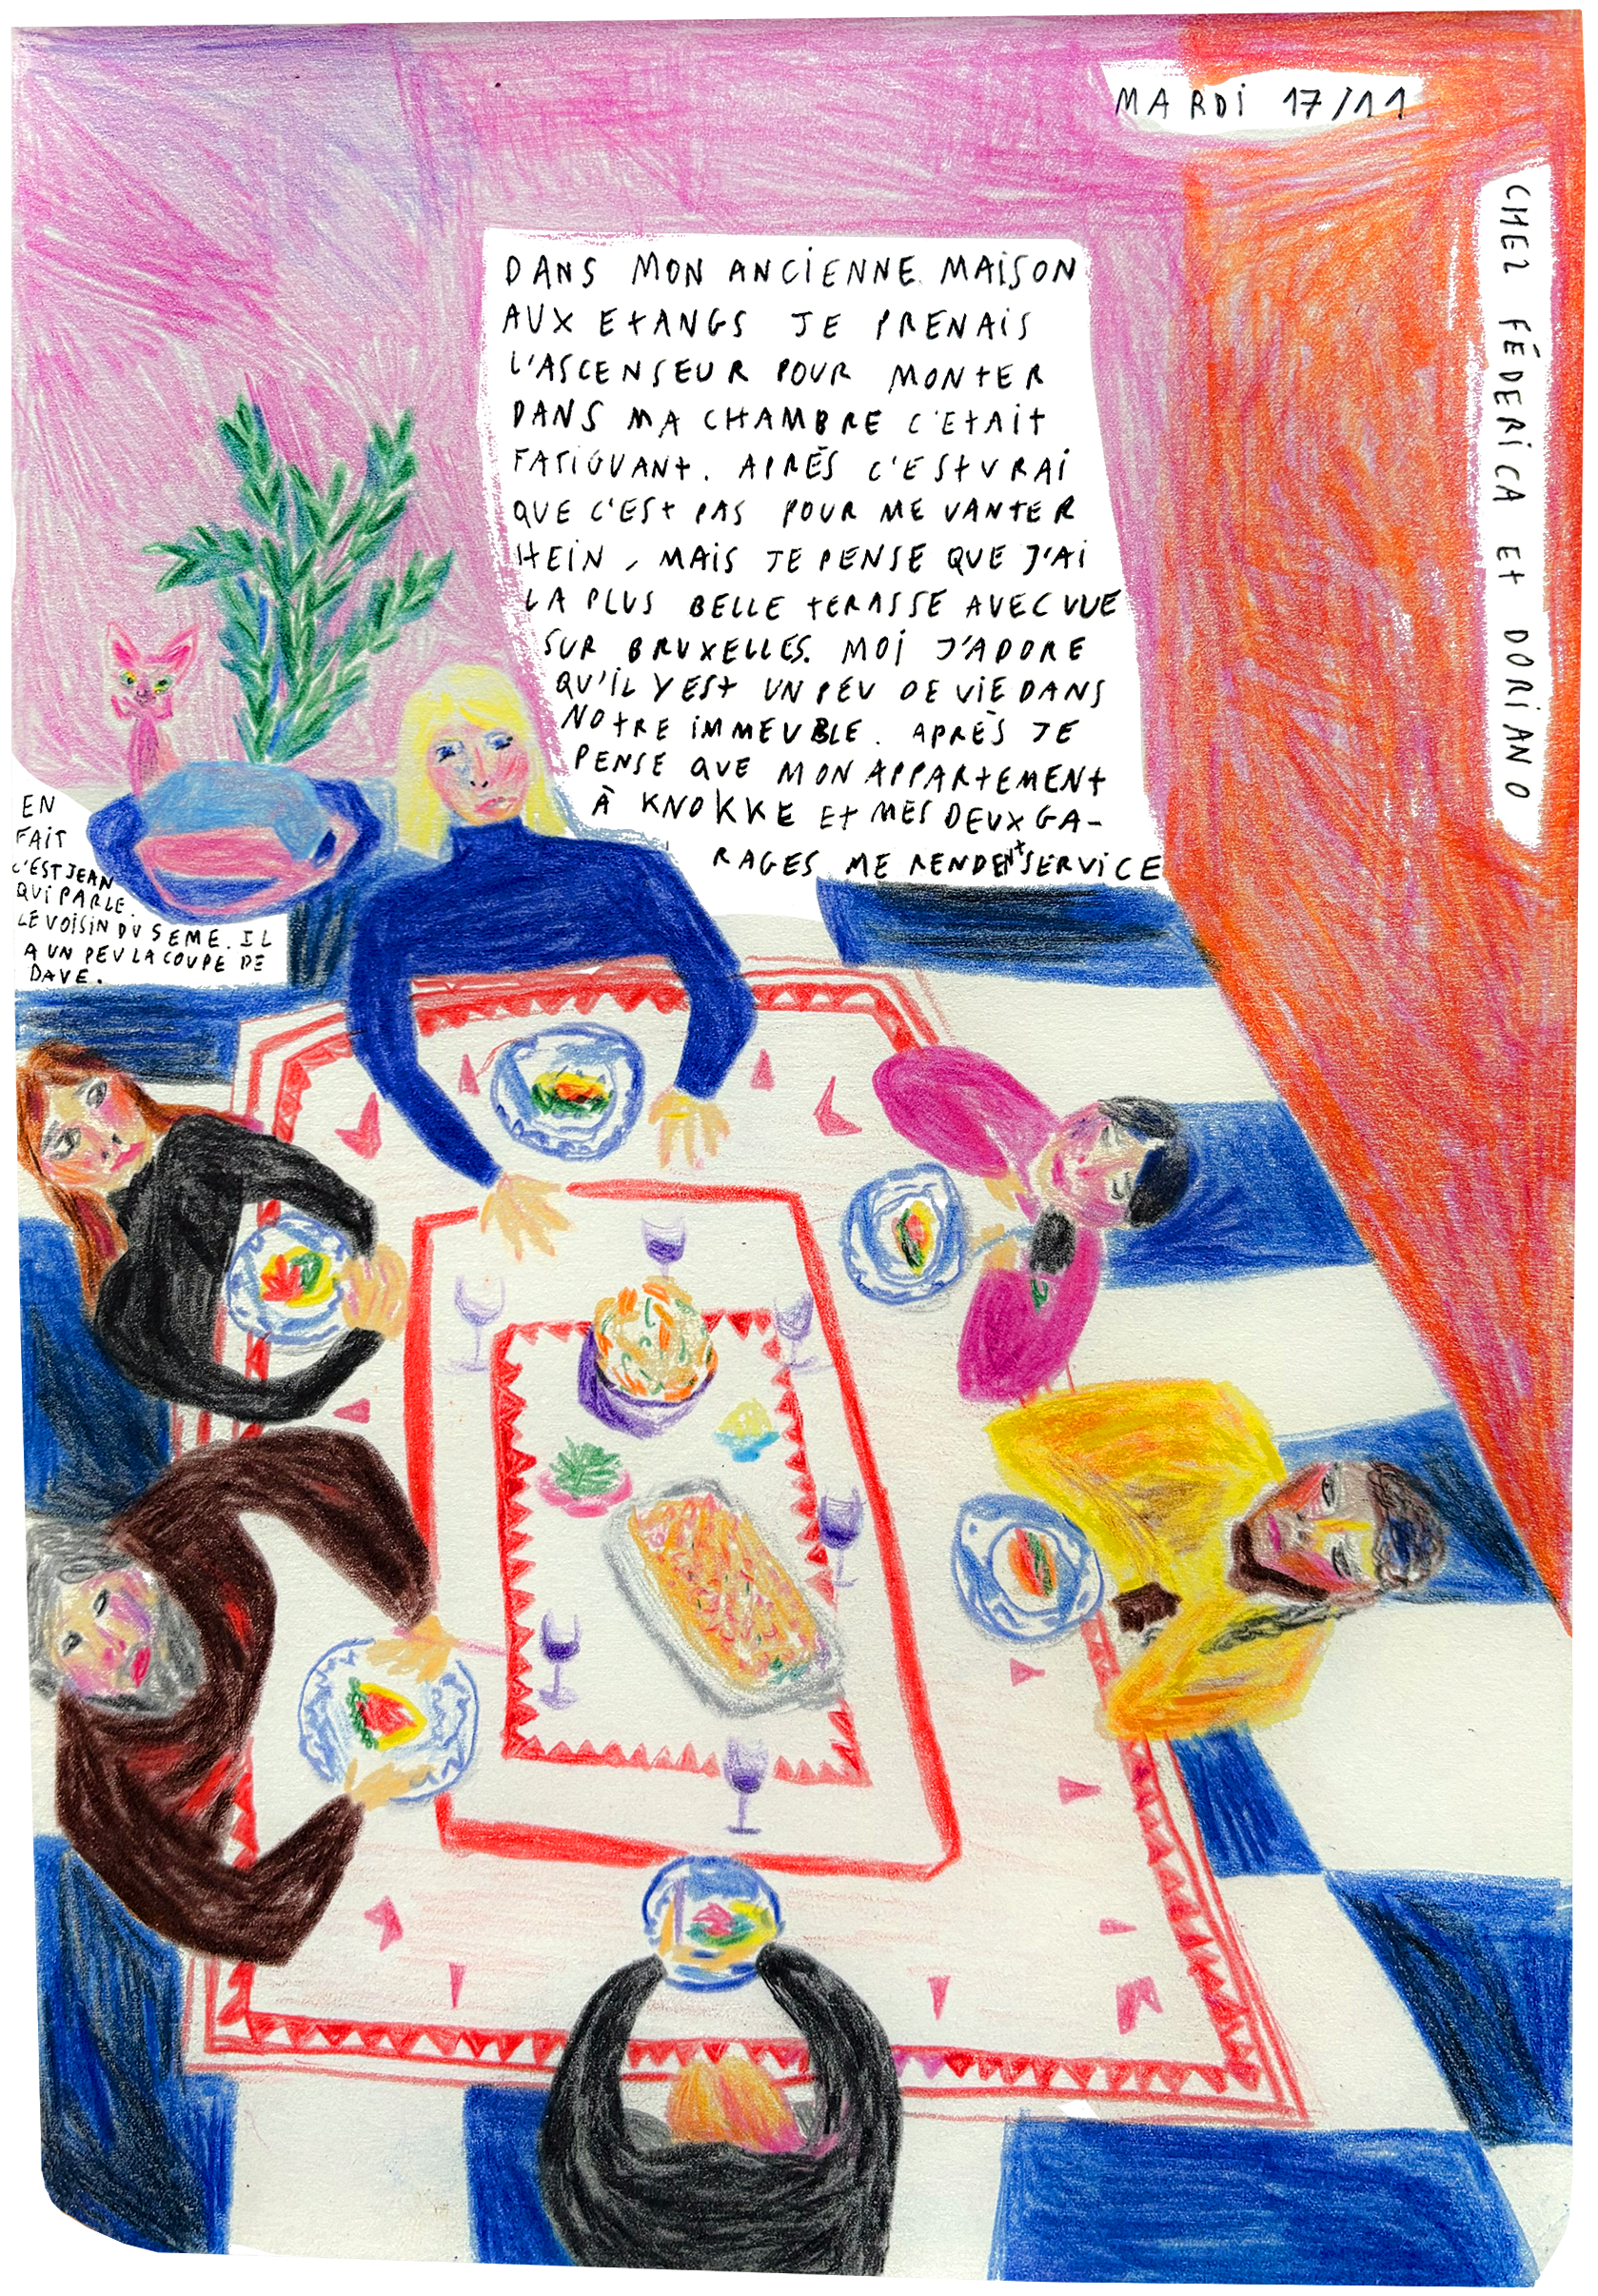 MARDI 17/11
CHEZ FÉDERICA Et DORIANO
DANS MON ANCIENNE MAISON
AUX EtANGS JE PRENAIS
L'ASCENSEUR POUR MONtER
DANS MA CHAMBRE C'EtAIt
FATIGUANt. APRÈS C'ESt VRAI
QUE C'ESt PAS POUR ME VANtER
HEIN, MAIS JE PENSE QUE J'AI
LA PLUS BELLE tERASSE AVEC VUE
SUR BRUXELLES. MOI J'ADORE
QU'IL Y ESt UN PEU DE VIE DANS
NOtRE IMMEUBLE. APRÈS JE
PENSE QUE MON APPARtEMENt
À KNOKKE Et MES DEUX GA-
RAGES ME RENDENt SERVICE
EN
FAIT
C'EST JEAN
QUI PARLE.
LE VOISIN DU 5EME. IL
A UN PEU LA COUPE DE
DAVE.